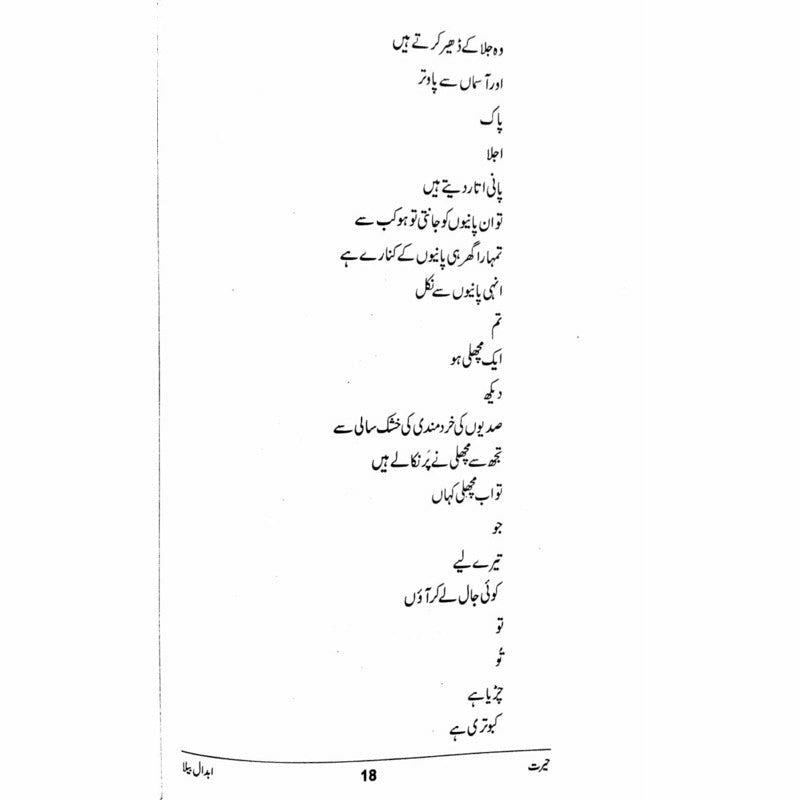 وہ جلا کے ڈھیر کرتے ہیں
اور آسماں سے پاوتر
پاک
اجلا
پانی اتار دیتے ہیں
تو ان پانیوں کو جانتی تو ہو کب سے
تمہارا گھر ہی پانیوں کے کنارے ہے
انہی پانیوں سے نکل
تم
ایک مچھلی ہو
دیکھ
صدیوں کی خرد مندی کی خشک سالی سے
تجھ سے مچھلی نے پَر نکالے ہیں
تو اب مچھلی کہاں
جو
تیرے لیے
کوئی جال لے کر آؤں
تو
تُو
چڑیا ہے
کبوتری ہے
حیرت
18
ابدال بیلا